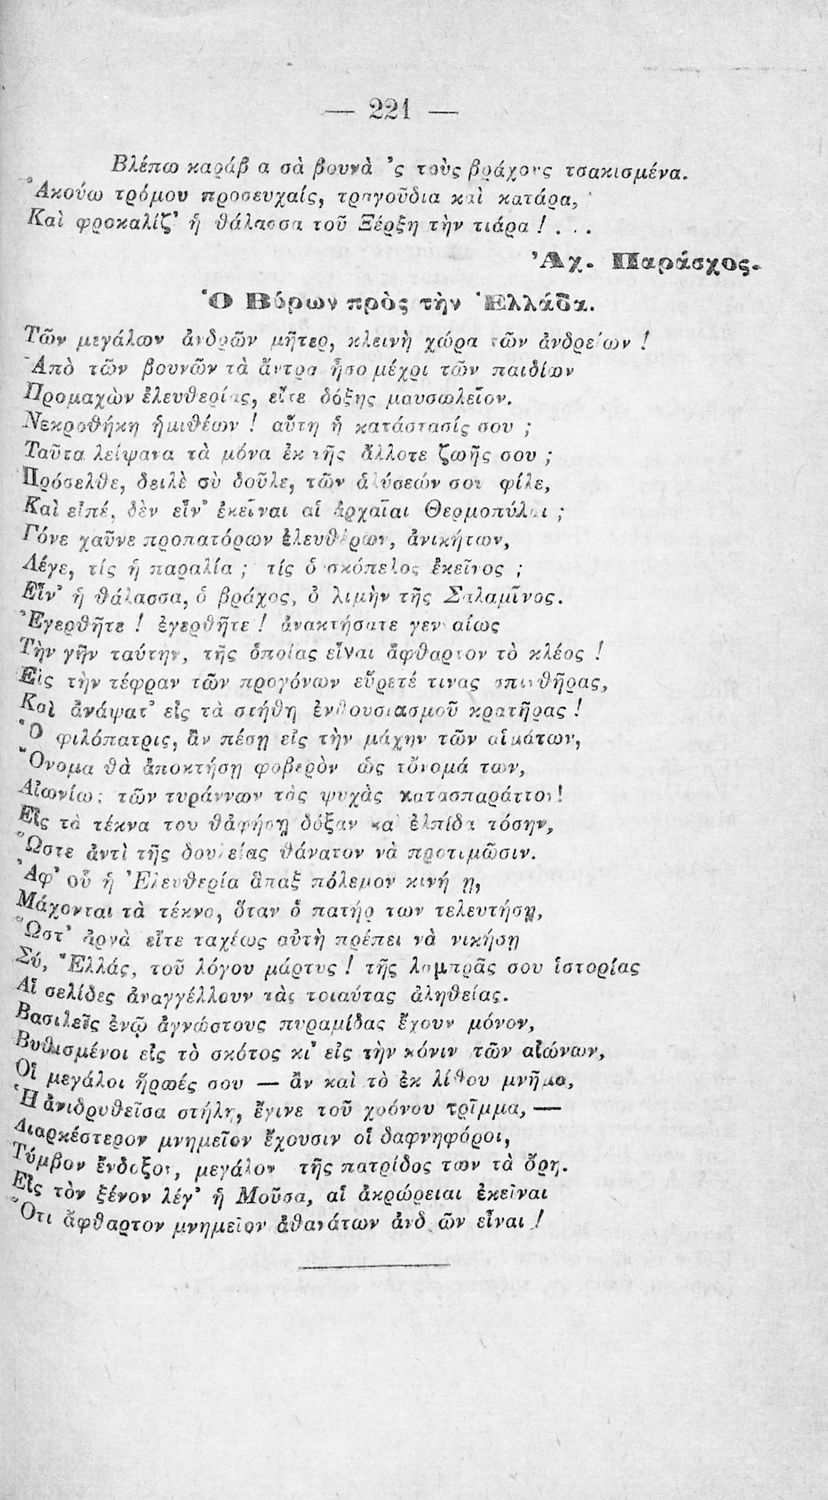 — 221 —
Βλέπω καράβια σὰ βουνὰ 'ς τοὺς βράχους τσακισμένα.
Ἀκούω τρόμου προσευχαίς, τραγούδια καὶ κατάρα,
Καὶ φροκαλίζ' ἡ θάλασσα τοῦ Ξέρξη τὴν τιάρα ! . . .
Ἀχ. Παράσχος.
Ὁ Βύρων πρὸς τὴν Ἑλλάδα.
Τῶν μεγάλων ἀνδρῶν μῆτερ, κλεινὴ χώρα τῶν ἀνδρείων !
Ἀπὸ τῶν βουνῶν τὰ ἄντρα ἦσο μέχρι τῶν παιδίων
Προμαχὼν ἐλευθερίας, εἴτε δόξης μαυσωλεῖον.
Νεκροθήκη ἡμιθέων ! αὕτη ἡ κατάστασίς σου ;
Ταῦτα λείψανα τὰ μόνα ἐκ τῆς ἄλλοτε ζωῆς σου ;
Πρόσελθε, δειλὲ σὺ δοῦλε, τῶν ἁλύσεών σου φίλε,
Καὶ εἰπέ, δὲν εἶν' ἐκεῖναι αἱ ἀρχαῖαι Θερμοπύλαι ;
Γόνε χαῦνε προπατόρων ἐλευθέρων, ἀνικήτων,
Λέγε, τίς ἡ παραλία ; τίς ὁ σκόπελος ἐκεῖνος ;
Εἶν' ἡ θάλασσα, ὁ βράχος, ὁ λιμὴν τῆς Σαλαμῖνος.
Ἐγερθῆτε ! ἐγερθῆτε ! ἀνακτήσατε γενναίως
Τὴν γῆν ταύτην, τῆς ὁποίας εἶναι ἄφθαρτον τὸ κλέος !
Εἰς τὴν τέφραν τῶν προγόνων εὕρετέ τινας σπινθῆρας,
Καὶ ἀνάψατ' εἰς τὰ στήθη ἐνθουσιασμοῦ κρατῆρας !
Ὁ φιλόπατρις, ἂν πέσῃ εἰς τὴν μάχην τῶν αἱμάτων,
Ὄνομα θὰ ἀποκτήσῃ φοβερὸν ὡς τὄνομά των,
Αἰωνίως τῶν τυράννων τὰς ψυχὰς κατασπαράττον!
Εἰς τὰ τέκνα του θἀφήσῃ δόξαν κα ἐλπίδα τόσην,
Ὥστε ἀντὶ τῆς δουλείας θάνατον νὰ προτιμῶσιν.
Ἀφ' οὗ ἡ Ἐλευθερία ἅπαξ πόλεμον κινή ῃ,
Μάχονται τὰ τέκνα, ὅταν ὁ πατήρ των τελευτήσῃ,
Ὥστ' ἀργὰ εἴτε ταχέως αὐτὴ πρέπει νὰ νικήσῃ
Σύ, Ἑλλάς, τοῦ λόγου μάρτυς ! τῆς λαμπρᾶς σου ἱστορίας
Αἱ σελίδες ἀναγγέλλουν τὰς τοιαύτας ἀληθείας.
Βασιλεῖς ἐνῷ ἀγνώστους πυραμίδας ἔχουν μόνον,
Βυθισμένοι εἰς τὸ σκότος κι' εἰς τὴν κόνιν τῶν αἰώνων,
Οἱ μεγάλοι ἥρωές σου — ἂν καὶ τὸ ἐκ λίθου μνῆμα,
Ἡ ἀνιδρυθεῖσα στήλη, ἔγινε τοῦ χρόνου τρῖμμα, —
Διαρκέστερον μνημεῖον ἔχουσιν οἱ δαφνηφόροι,
Τύμβον ἔνδοξον, μεγάλον τῆς πατρίδος των τὰ ὄρη.
Εἰς τὸν ξένον λέγ' ἡ Μοῦσα, αἱ ἀκρώρειαι ἐκεῖναι
Ὅτι ἄφθαρτον μνημεῖον ἀθανάτων ἀνδρῶν εἶναι !